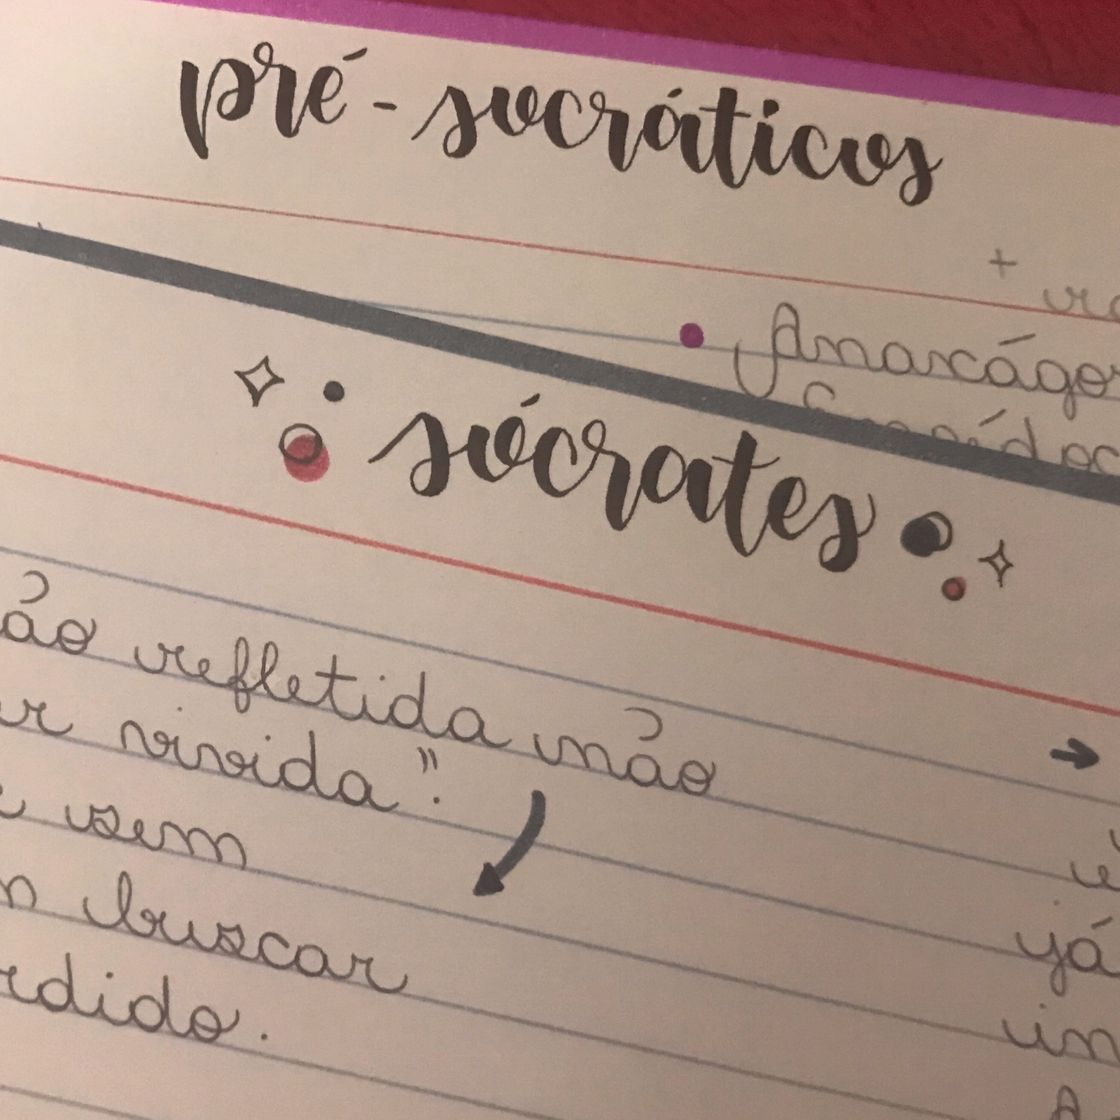 pré-socráticos
+
Anaxágor
sócrates
ão refletida não
r vivida".
sem
buscar
rdido.
já